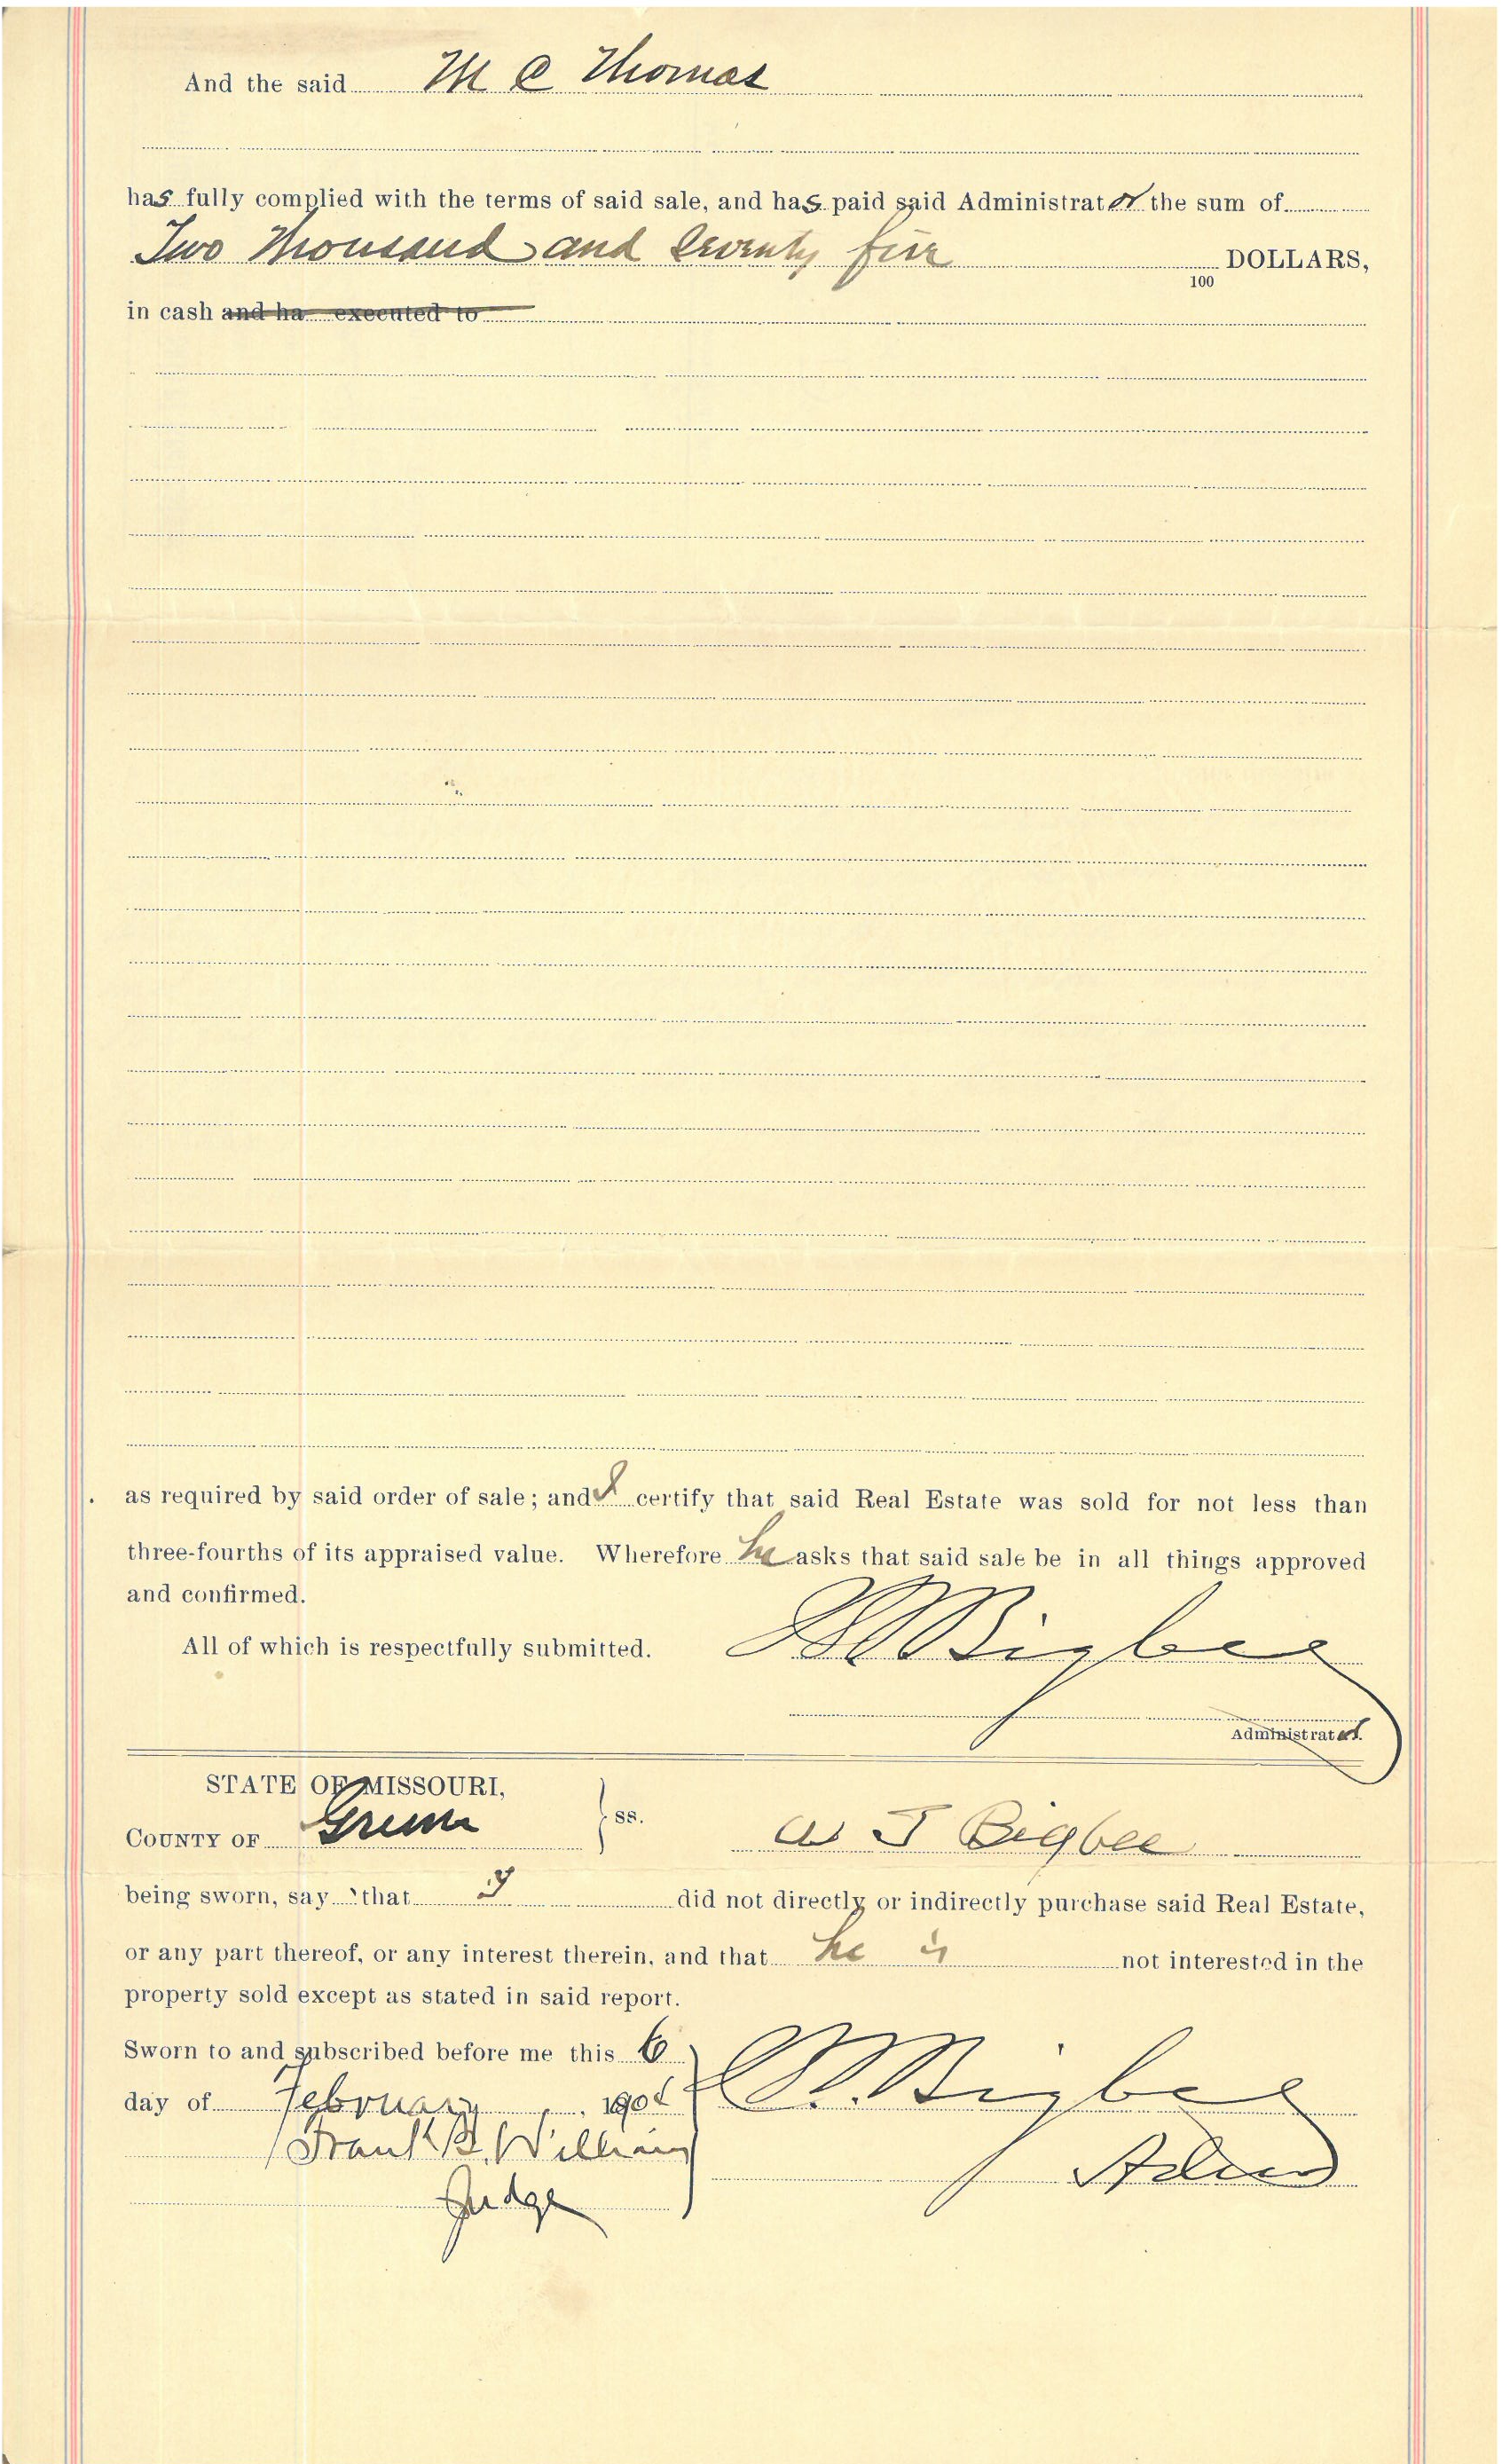 And the said M C Thomas
has fully complied with the terms of said sale, and has paid said Administrator the sum of
Two Thousand and Seventy five DOLLARS,
100
in cash and ha executed to
as required by said order of sale; and I certify that said Real Estate was sold for not less than
three-fourths of its appraised value. Wherefore he asks that said sale be in all things approved
and confirmed.
All of which is respectfully submitted. Bigbee
Administrator.
STATE OF MISSOURI,
COUNTY OF Greene ss. W J Bigbee
being sworn, say that I did not directly or indirectly purchase said Real Estate,
or any part thereof, or any interest therein, and that he is not interested in the
property sold except as stated in said report.
Sworn to and subscribed before me this 6
day of February, 190 Bigbee
Frank B. Williams Admr
Judge